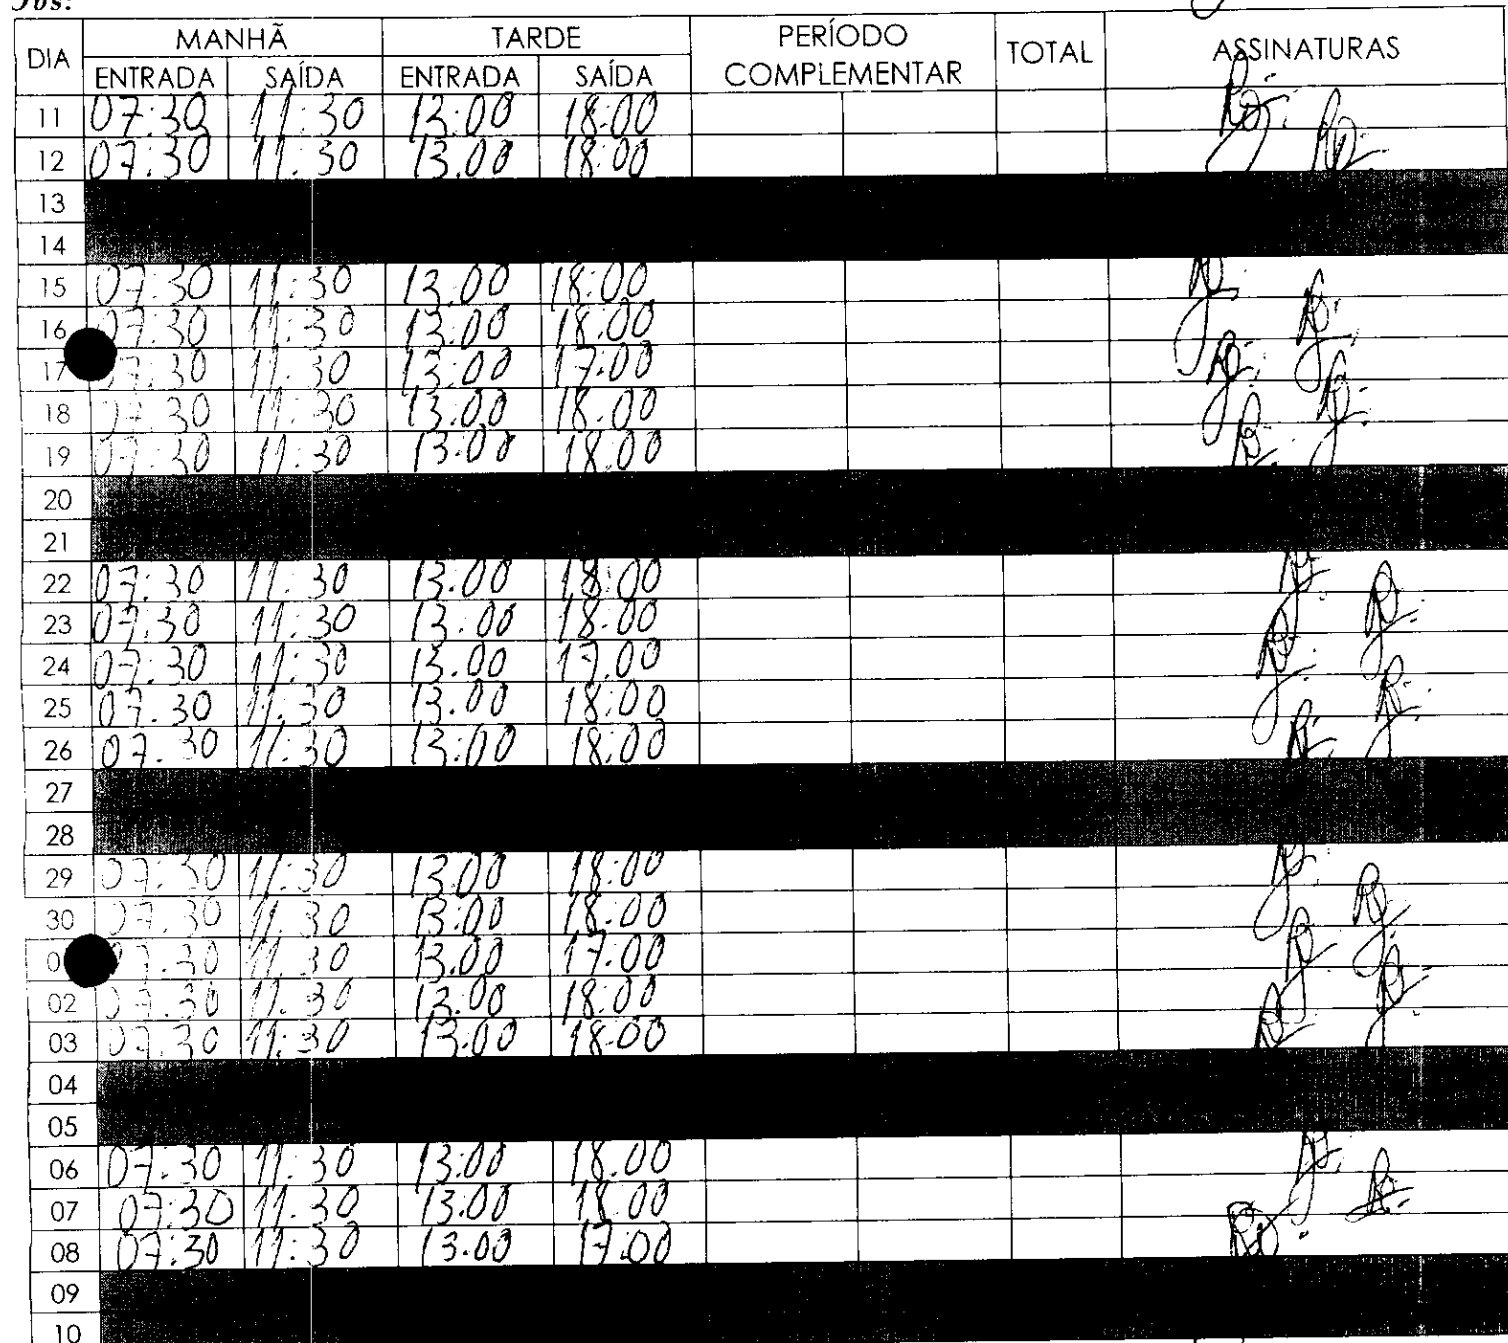 Obs:
DIA MANHÃ TARDE PERÍODO COMPLEMENTAR TOTAL ASSINATURAS
ENTRADA SAÍDA ENTRADA SAÍDA
11 07:30 11:30 13:00 18:00
12 07:30 11:30 13.00 18:00
13
14
15 07:30 11:30 13:00 18:00
16 07:30 11:30 13:00 18:00
17 07:30 11:30 13:00 17:00
18 07:30 11:30 13:00 18:00
19 07:30 11:30 13:00 18:00
20
21
22 07:30 11:30 13:00 18:00
23 07:30 11:30 13:00 18:00
24 07:30 11:30 13.00 17.00
25 07.30 11.30 13.00 18:00
26 07.30 11:30 13:00 18:00
27
28
29 07.30 11:30 13:00 18:00
30 07.30 11.30 13:00 18:00
07.30 11.30 13.00 17.00
02 07.30 11.30 13:00 18:00
03 07.30 11:30 13:00 18:00
04
05
06 07.30 11:30 13:00 18.00
07 07:30 11:30 13:00 18:00
08 07:30 11:30 13.00 17:00
09
10